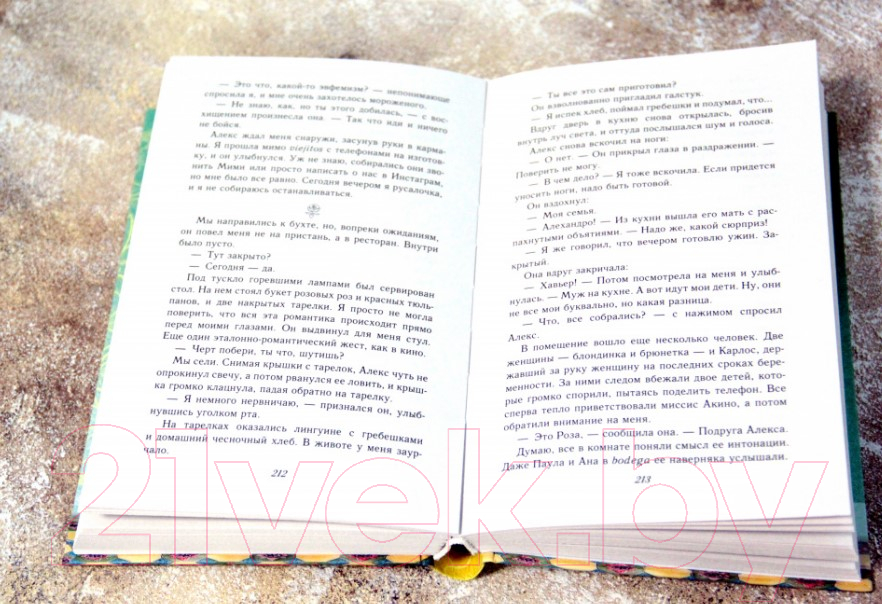 — Это что, какой-то эвфемизм? — непонимающе
спросила я, и мне очень захотелось мороженого.
— Не знаю, как, но ты этого добилась, — с вос-
хищением произнесла она. — Так что иди и ничего
не бойся.
Алекс ждал меня снаружи, засунув руки в карма-
ны. Я прошла мимо viejitos с телефонами на изготов-
ку, и он улыбнулся. Уж не знаю, собирались они зво-
нить Мими или просто написать о нас в Инстаграм,
но мне было все равно. Сегодня вечером я русалочка,
и я не собираюсь останавливаться.
Мы направились к бухте, но, вопреки ожиданиям,
он повел меня не на пристань, а в ресторан. Внутри
было пусто.
— Тут закрыто?
— Сегодня — да.
Под тускло горевшими лампами был сервирован
стол. На нем стоял букет розовых роз и красных тюль-
панов, и две накрытых тарелки. Я просто не могла
поверить, что вся эта романтика происходит прямо
перед моими глазами. Он выдвинул для меня стул.
Еще один эталонно-романтический жест, как в кино.
— Черт побери, ты что, шутишь?
Мы сели. Снимая крышки с тарелок, Алекс чуть не
опрокинул свечу, а потом рванулся ее ловить, и крыш-
ка громко клацнула, падая обратно на тарелку.
— Я немного нервничаю, — признался он, улыб-
нувшись уголком рта.
На тарелках оказались лингуине с гребешками
и домашний чесночный хлеб. В животе у меня заур-
чало.
212
— Ты все это сам приготовил?
Он взволнованно пригладил галстук.
— Я испек хлеб, поймал гребешки и подумал, что...
Вдруг дверь в кухню снова открылась, бросив
внутрь луч света, и оттуда послышался шум и голоса.
Алекс снова вскочил на ноги:
— О нет. — Он прикрыл глаза в раздражении. —
Поверить не могу.
— В чем дело? — Я тоже вскочила. Если придется
уносить ноги, надо быть готовой.
Он вздохнул:
— Моя семья.
— Алехандро! — Из кухни вышла его мать с рас-
пахнутыми объятиями. — Надо же, какой сюрприз!
— Я же говорил, что вечером готовлю ужин. За-
крытый.
Она вдруг закричала:
— Хавьер! — Потом посмотрела на меня и улыб-
нулась. — Муж на кухне. А вот идут мои дети. Ну, они
не все мои буквально, но какая разница.
— Что, все собрались? — с нажимом спросил
Алекс.
В помещение вошло еще несколько человек. Две
женщины — блондинка и брюнетка — и Карлос, дер-
жавший за руку женщину на последних сроках бере-
менности. За ними следом вбежали двое детей, кото-
рые громко спорили, пытаясь поделить телефон. Все
сперва тепло приветствовали миссис Акино, а потом
обратили внимание на меня.
— Это Роза, — сообщила она. — Подруга Алекса.
Думаю, все в комнате поняли смысл ее интонации.
Даже Паула и Ана в bodega ее наверняка услышали.
213
21vek.by